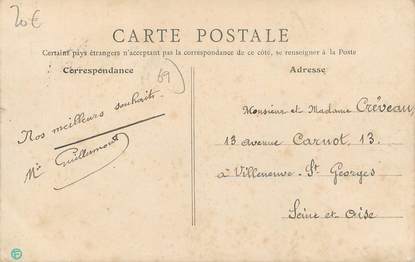 20€
CARTE POSTALE
Certains pays étrangers n'acceptant pas la correspondance de ce côté, se renseigner à la Poste
Correspondance
Adresse
69
Nos meilleurs souhaits
Guillemont
Monsieur et Madame Créveau,
13 avenue Carnot, 13.
à Villeneuve-St Georges
Seine et Oise